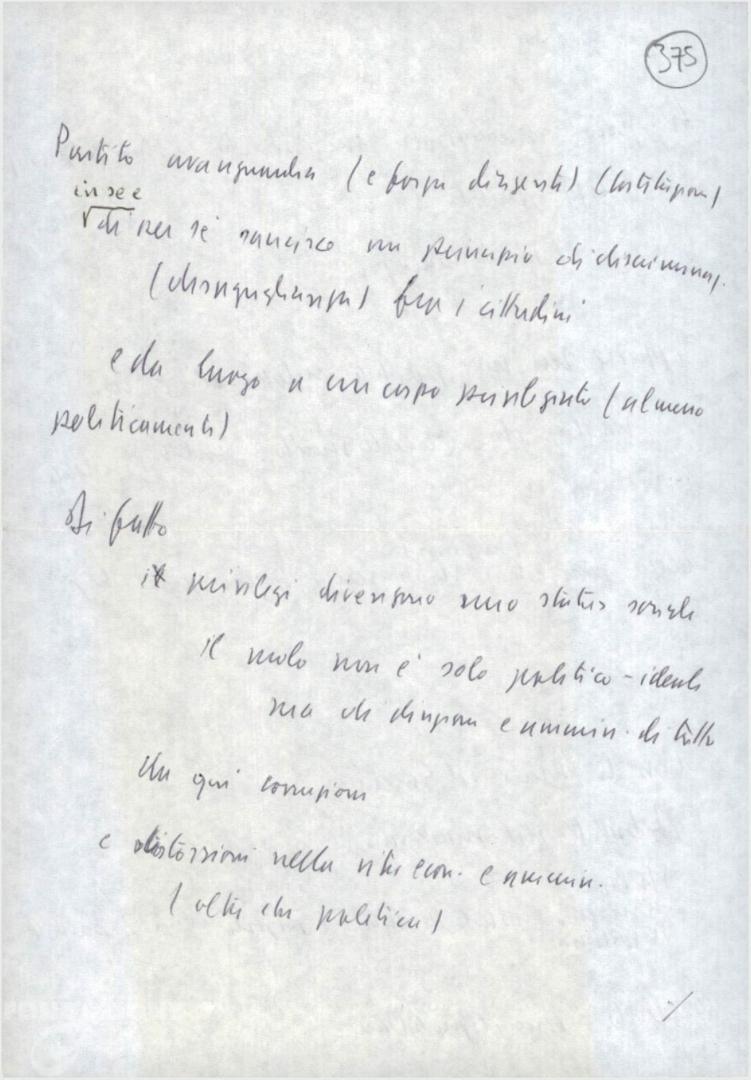 375
Partito avanguardia (e forza dirigente) (Costituzione)
in se e
di per sè sancisce un principio di discriminaz.
(disuguaglianza) fra i cittadini
e da luogo a un corpo privilegiato (almeno
politicamente)
Di fatto
i privilegi divengono uno status sociale
il ruolo non è solo politico-ideale
ma di direzione e ammin. di tutto
Da qui corruzione
e distorsioni nella vita econ. e ammin.
(oltre che politica)
/